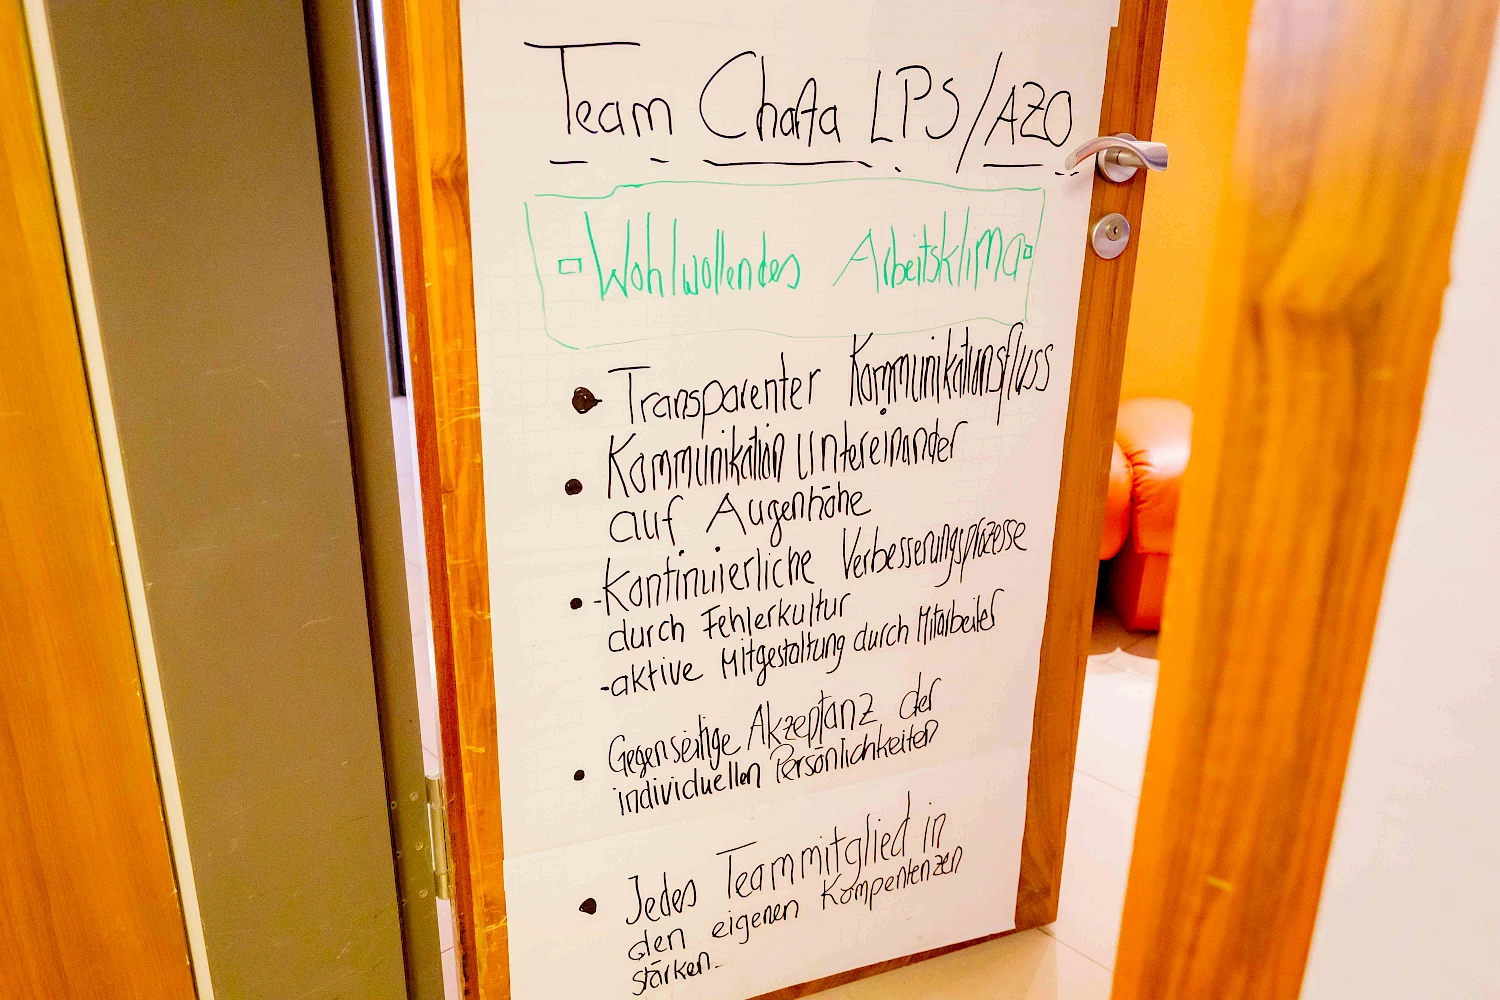 Team Charta LPS/AZO
Wohlwollendes Arbeitsklima
• Transparenter Kommunikationsfluss
• Kommunikation untereinander
auf Augenhöhe
• -Kontinuierliche Verbesserungsprozesse
durch Fehlerkultur
-aktive Mitgestaltung durch Mitarbeiter
• Gegenseitige Akzeptanz der
individuellen Persönlichkeiten
• Jedes Teammitglied in
den eigenen Kompentenzen
stärken.